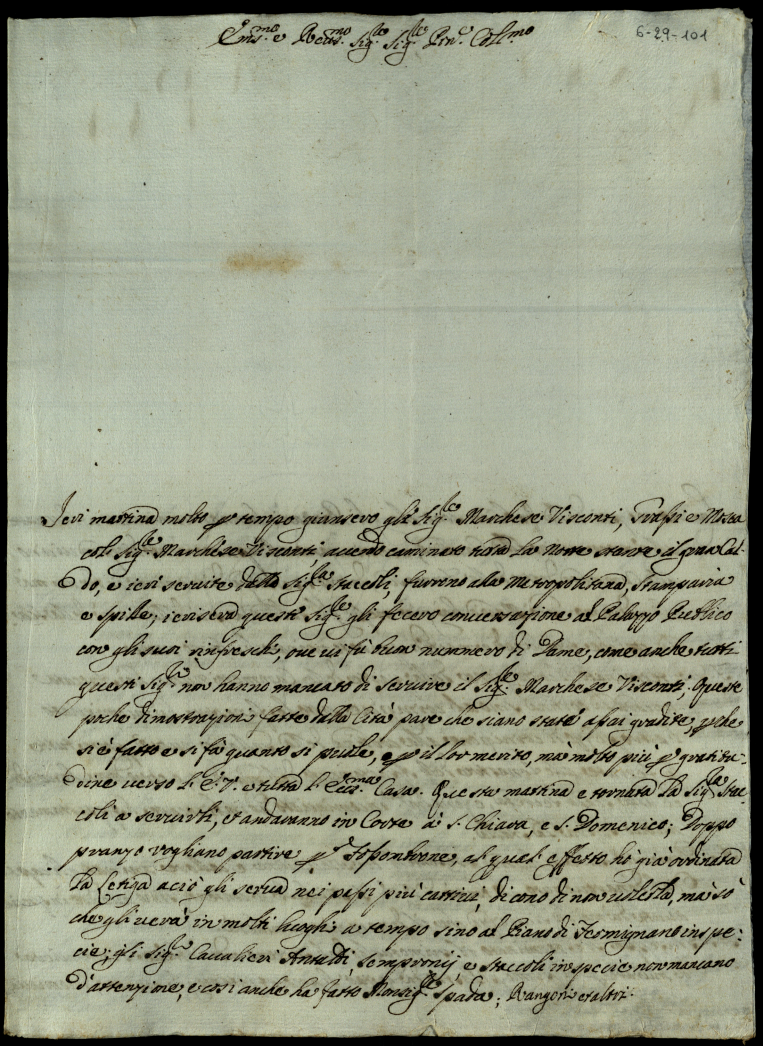 Em.mo e Rev.mo Sig.re Sig.re Pron.e Coll.mo
6-29-101
Ieri mattina molto per tempo giunsero gli Sig.re Marchese Visconti, Grassi e Mosca
col Sig.re Marchese Visconti, avendo caminato tutta La Notte stante il gran Cal-
do, e ieri servite dalla Sig.ra Staccoli, furrono alla Metropolitana, Stamparia
e Spille; ierisera questi Sig.ri gli fecero conversazione al Palazzo Publico
con gli suoi rinfreschi, ove vi fù buon nummero di Dame, come anche tutti
questi Sig.ri non hanno mancato di servire il Sig.re Marchese Visconti; Queste
poche dimostrazioni fatte dalla Città pare che siano state assai gradite, perche
si è fatto e si fà quanto si puole, e per il lor merito, mà molto più per gratitu-
dine verso L'E.V. e tutta L'Ecc.ma Casa. Questa mattina è tornata La Sig.ra Stac-
coli a servirli, et andaranno in Corte à S. Chiara, e S. Domenico; Doppo
pranzo vogliano partire per Fossombrone, al qual effetto hò già ordinata
La Letiga aciò gli serva nei passi più cattivi, dicono di non volerla, mà sò
che gli verà in molti luoghi a tempo sino al Piano di Fermignano in spe-
cie; gli Sig.ri Cavalieri Antaldi, Sempronij, e Staccoli in specie non mancano
d'attenzione, e così anche ha fatto Monsig.re Spada; Rangoni et altri.